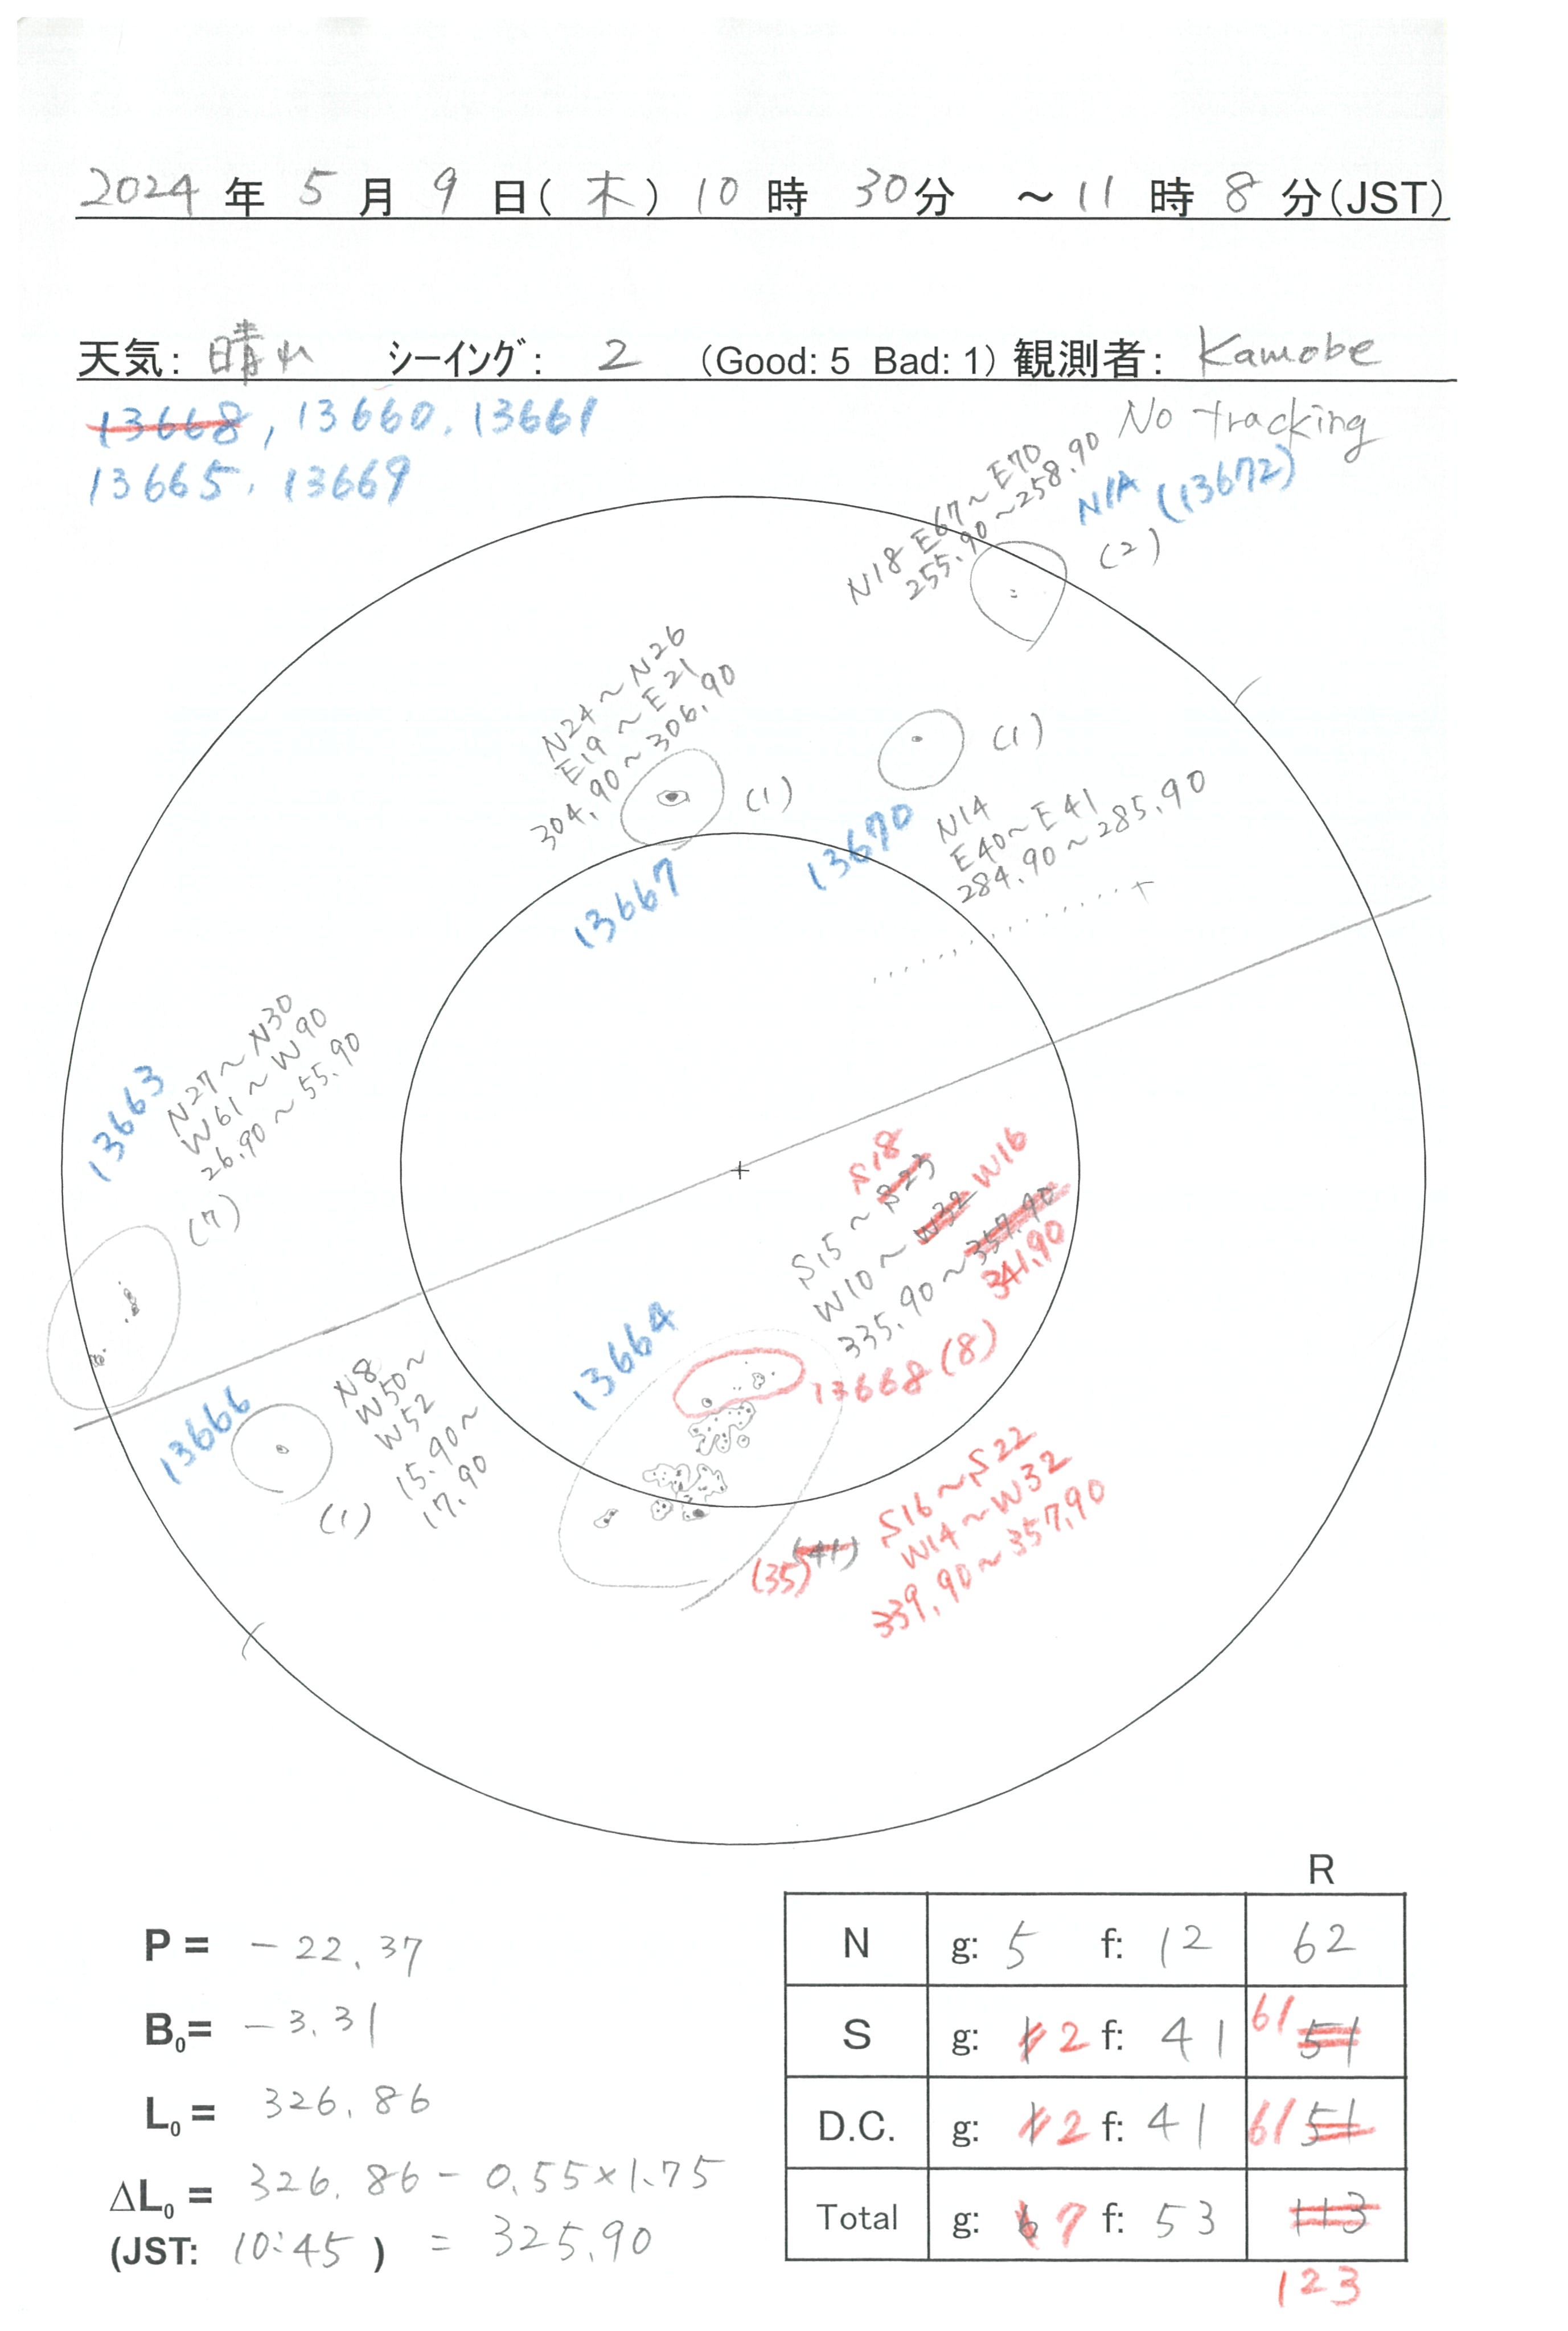 2024 年 5 月 9 日(木) 10 時 30分 ~11 時 8 分(JST)
天気: 晴れ シーイング: 2 (Good: 5 Bad: 1) 観測者: Kamobe
13668, 13660, 13661
No tracking
13665, 13669
N18 E67~E70
255.90~258.90
N/A (13672)
(2)
N24~N26
E19~E21
304.90~306.90
(1)
13667
(1)
13670
N14
E40~E41
284.90~285.90
13663
N27~N30
W61~W90
26.90~55.90
(7)
13666
N8
W50~
W52
15.90~
17.90
(1)
13664
S15~S23 S18
W10~W32 W16
335.90~357.90
341.90
13668 (8)
S16~S22
W14~W32
339.90~357.90
(35) (41)
P = -22.37
B0= -3.31
L0 = 326.86
ΔL0 = 326.86 - 0.55×1.75
(JST: 10:45 ) = 325.90
R
N g: 5 f: 12 62
S g: 1 2 f: 41 61 51
D.C. g: 1 2 f: 41 61 51
Total g: 6 7 f: 53 113
123